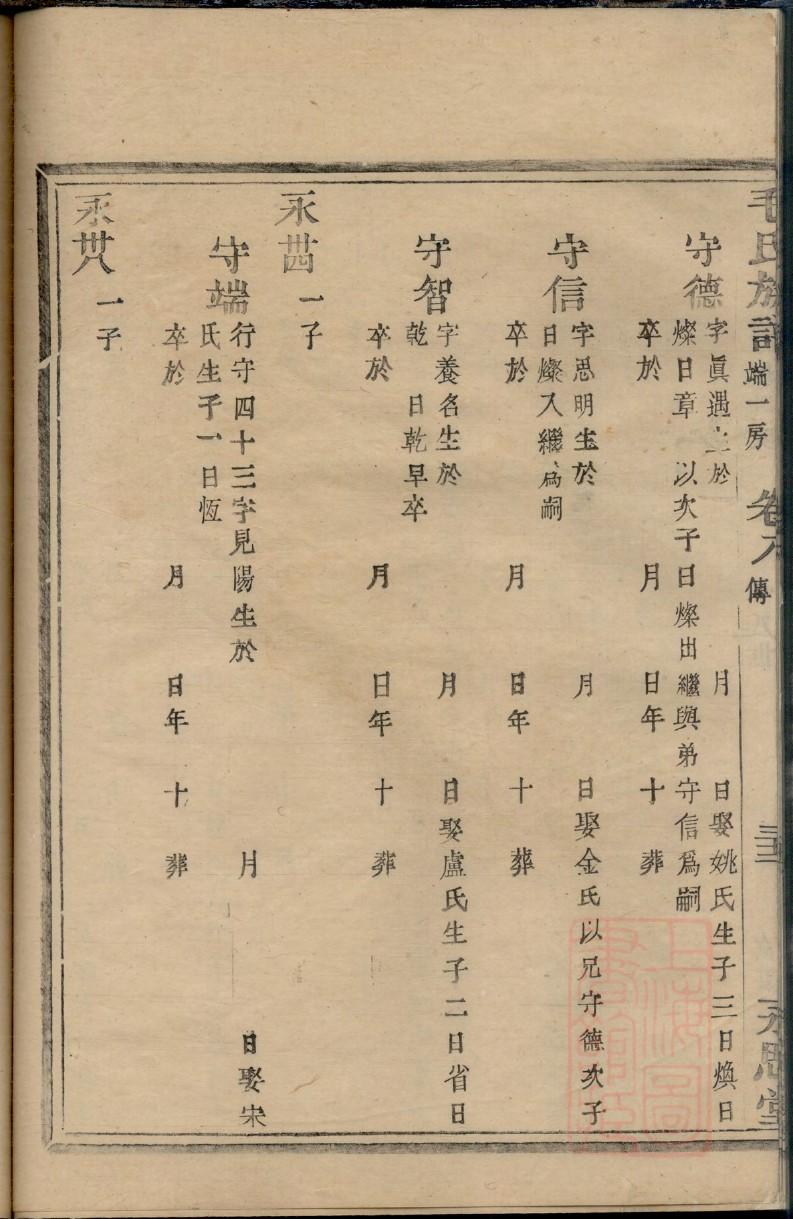 毛氏族譜 端一房 卷八 傳 三三 永思堂
守德 字眞遇生於 月 日娶姚氏生子三曰煥曰
燦曰章 以次子曰燦出繼與弟守信爲嗣
卒於 月 日年 十 葬
守信 字思明生於 月 日娶金氏以兄守德次子
曰燦入繼爲嗣
卒於 月 日年 十 葬
守智 字養名生於 月 日娶盧氏生子二曰省曰
乾 曰乾早卒
卒於 月 日年 十 葬
永卌四 一子
守端 行守四十三字見陽生於 月 日娶宋
氏生子一曰恆
卒於 月 日年 十 葬
永卌八 一子